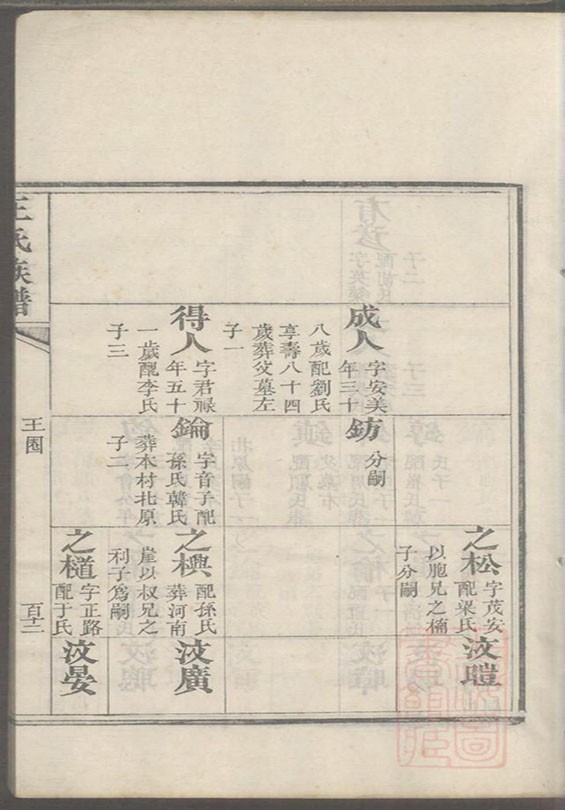 成人
字安美
年三十
八歲配劉氏
享壽八十四
歲葬父墓左
子一
得人
字君祿
年五十
一歲配李氏
子三
鈁
分嗣
鑰
字音子配
孫氏韓氏
葬本村北原
子二
之松
字茂安
配梁氏
以胞兄之楠
子分嗣
之櫆
配孫氏
葬河南
崖以叔兄之
利子爲嗣
之樋
字正路
配于氏
汶廣
汶晏
王氏族譜
王圈
百十二